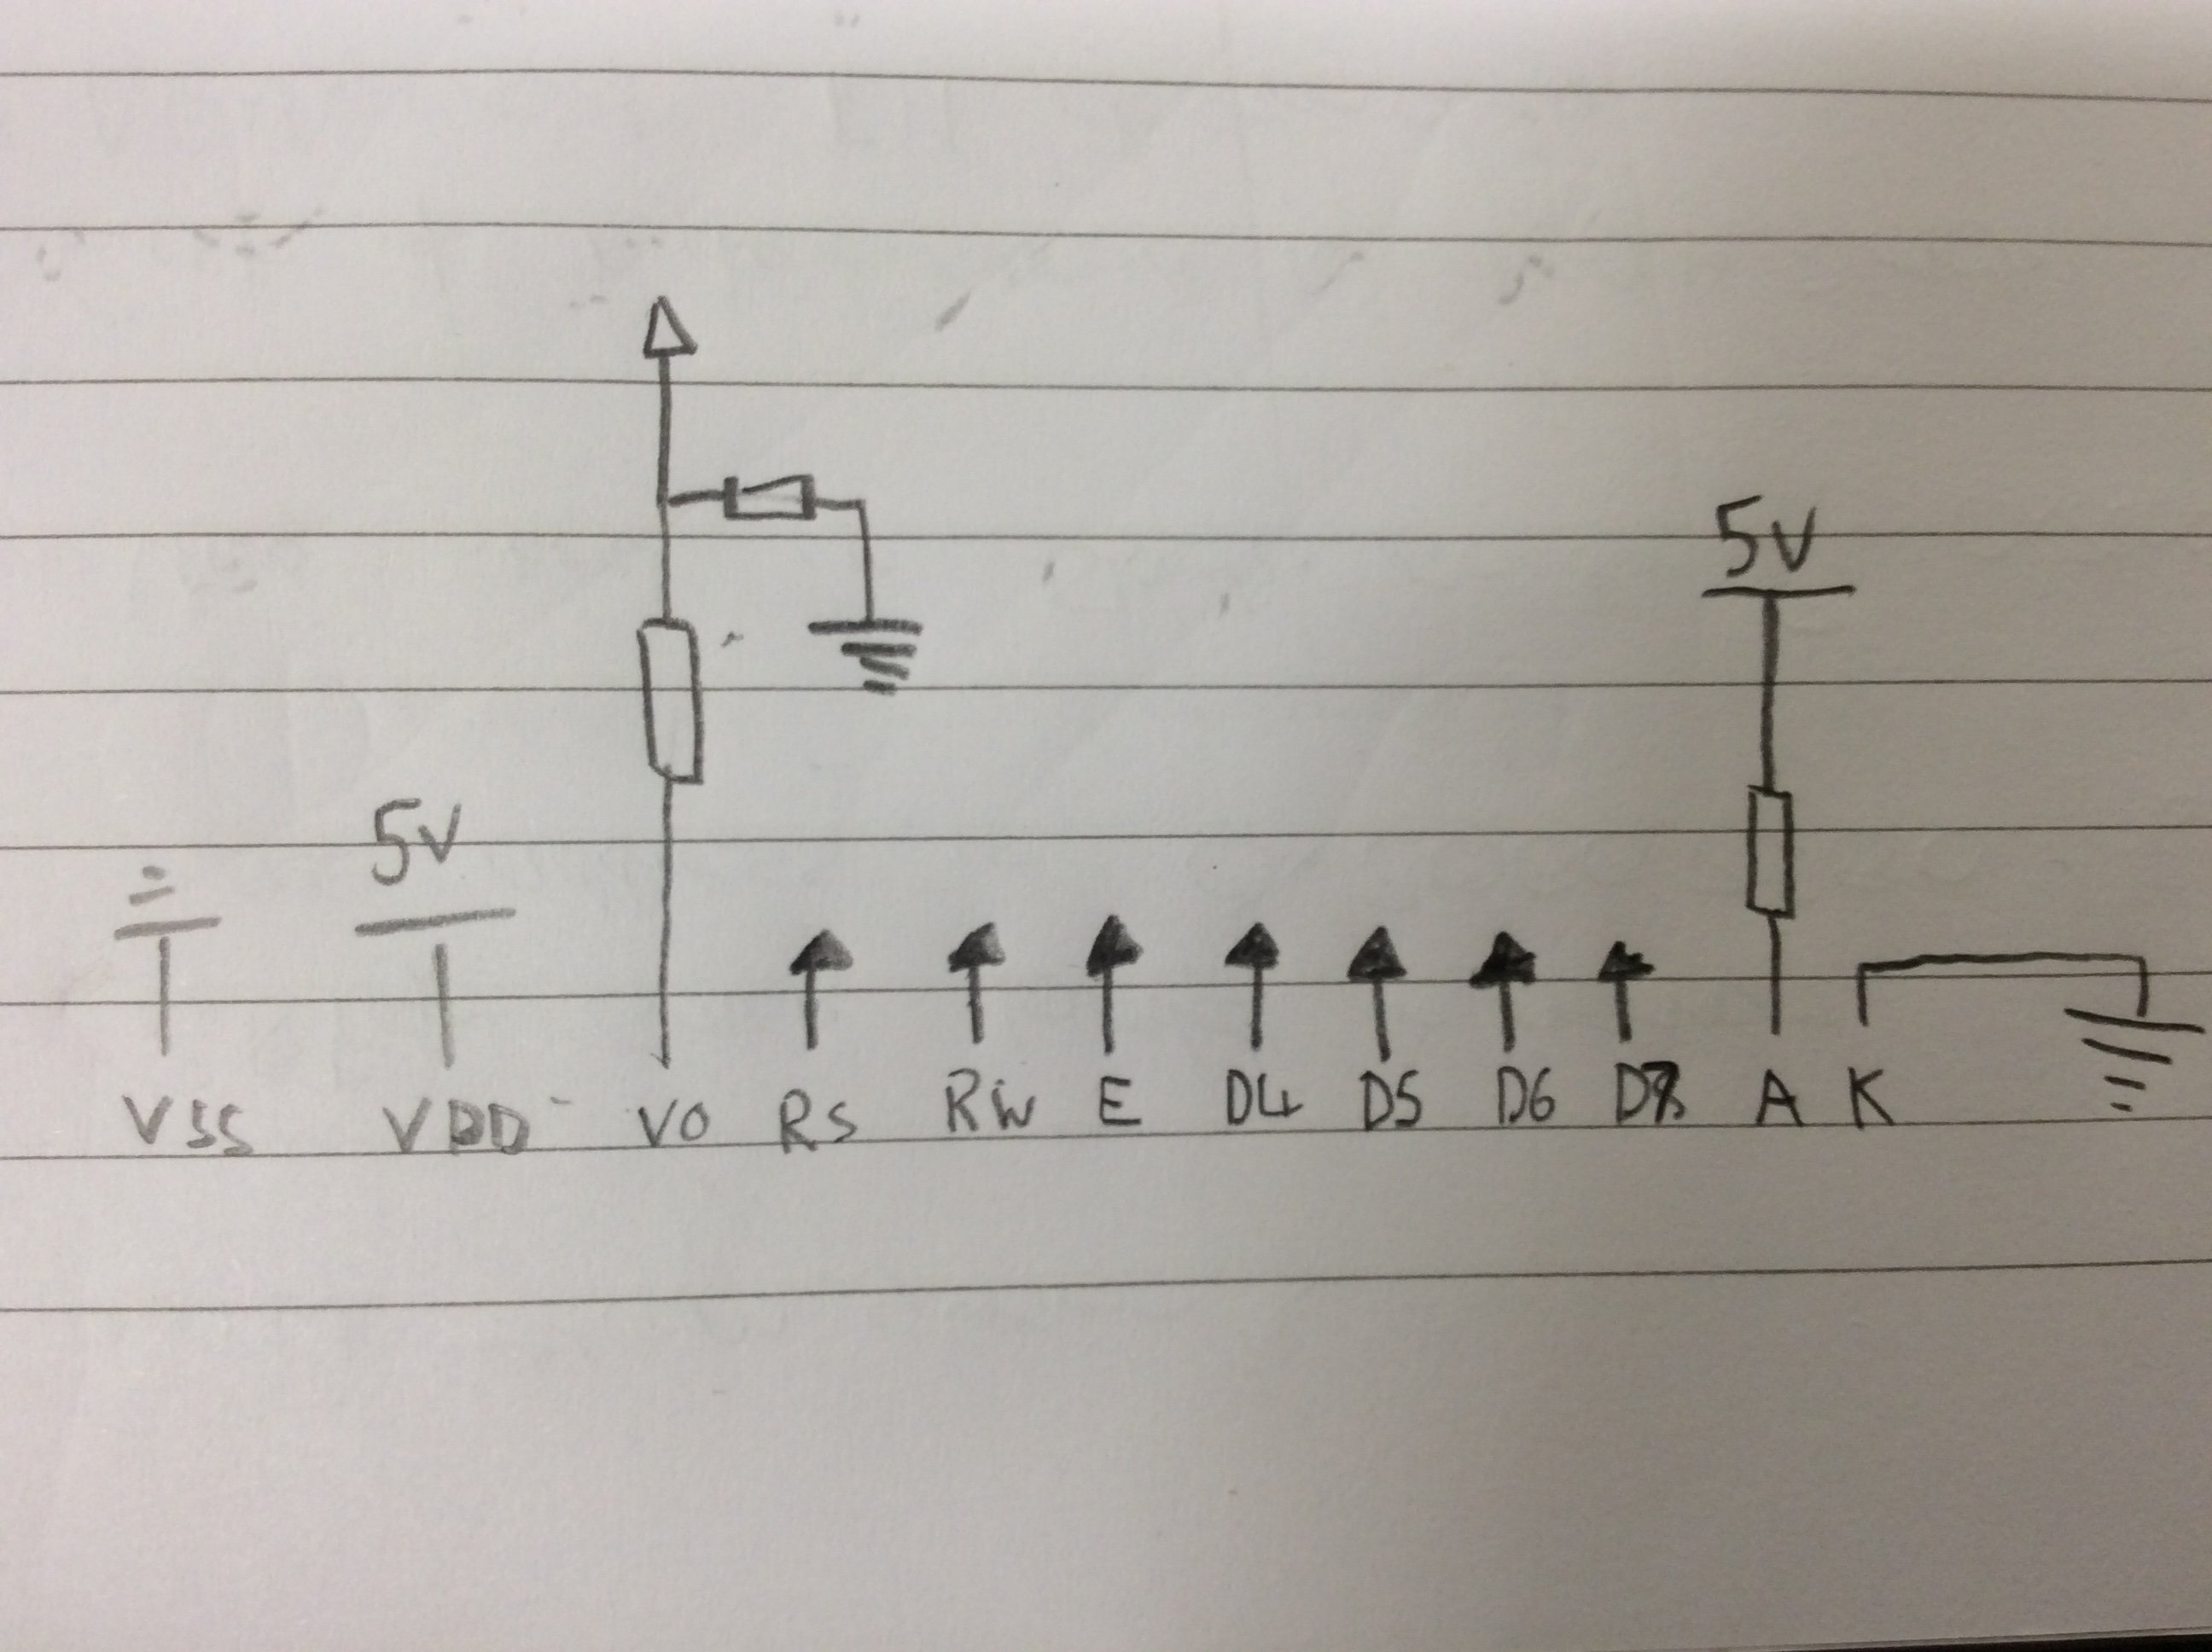 5V
5V
VSS VDD VO RS RW E D4 D5 D6 A K